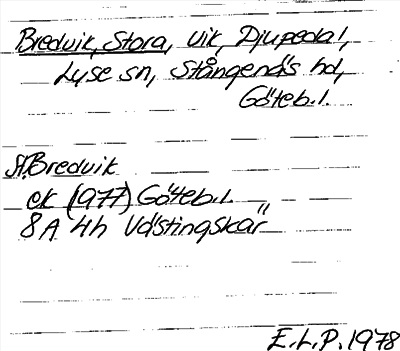 Bredvik, Stora, vik, Djupedal,
Lyse sn, Stångenäs hd,
Göteb.l.
St. Bredvik
ek (977) Göteb.l.
8A 4h Västingskär
E.L.P. 1978